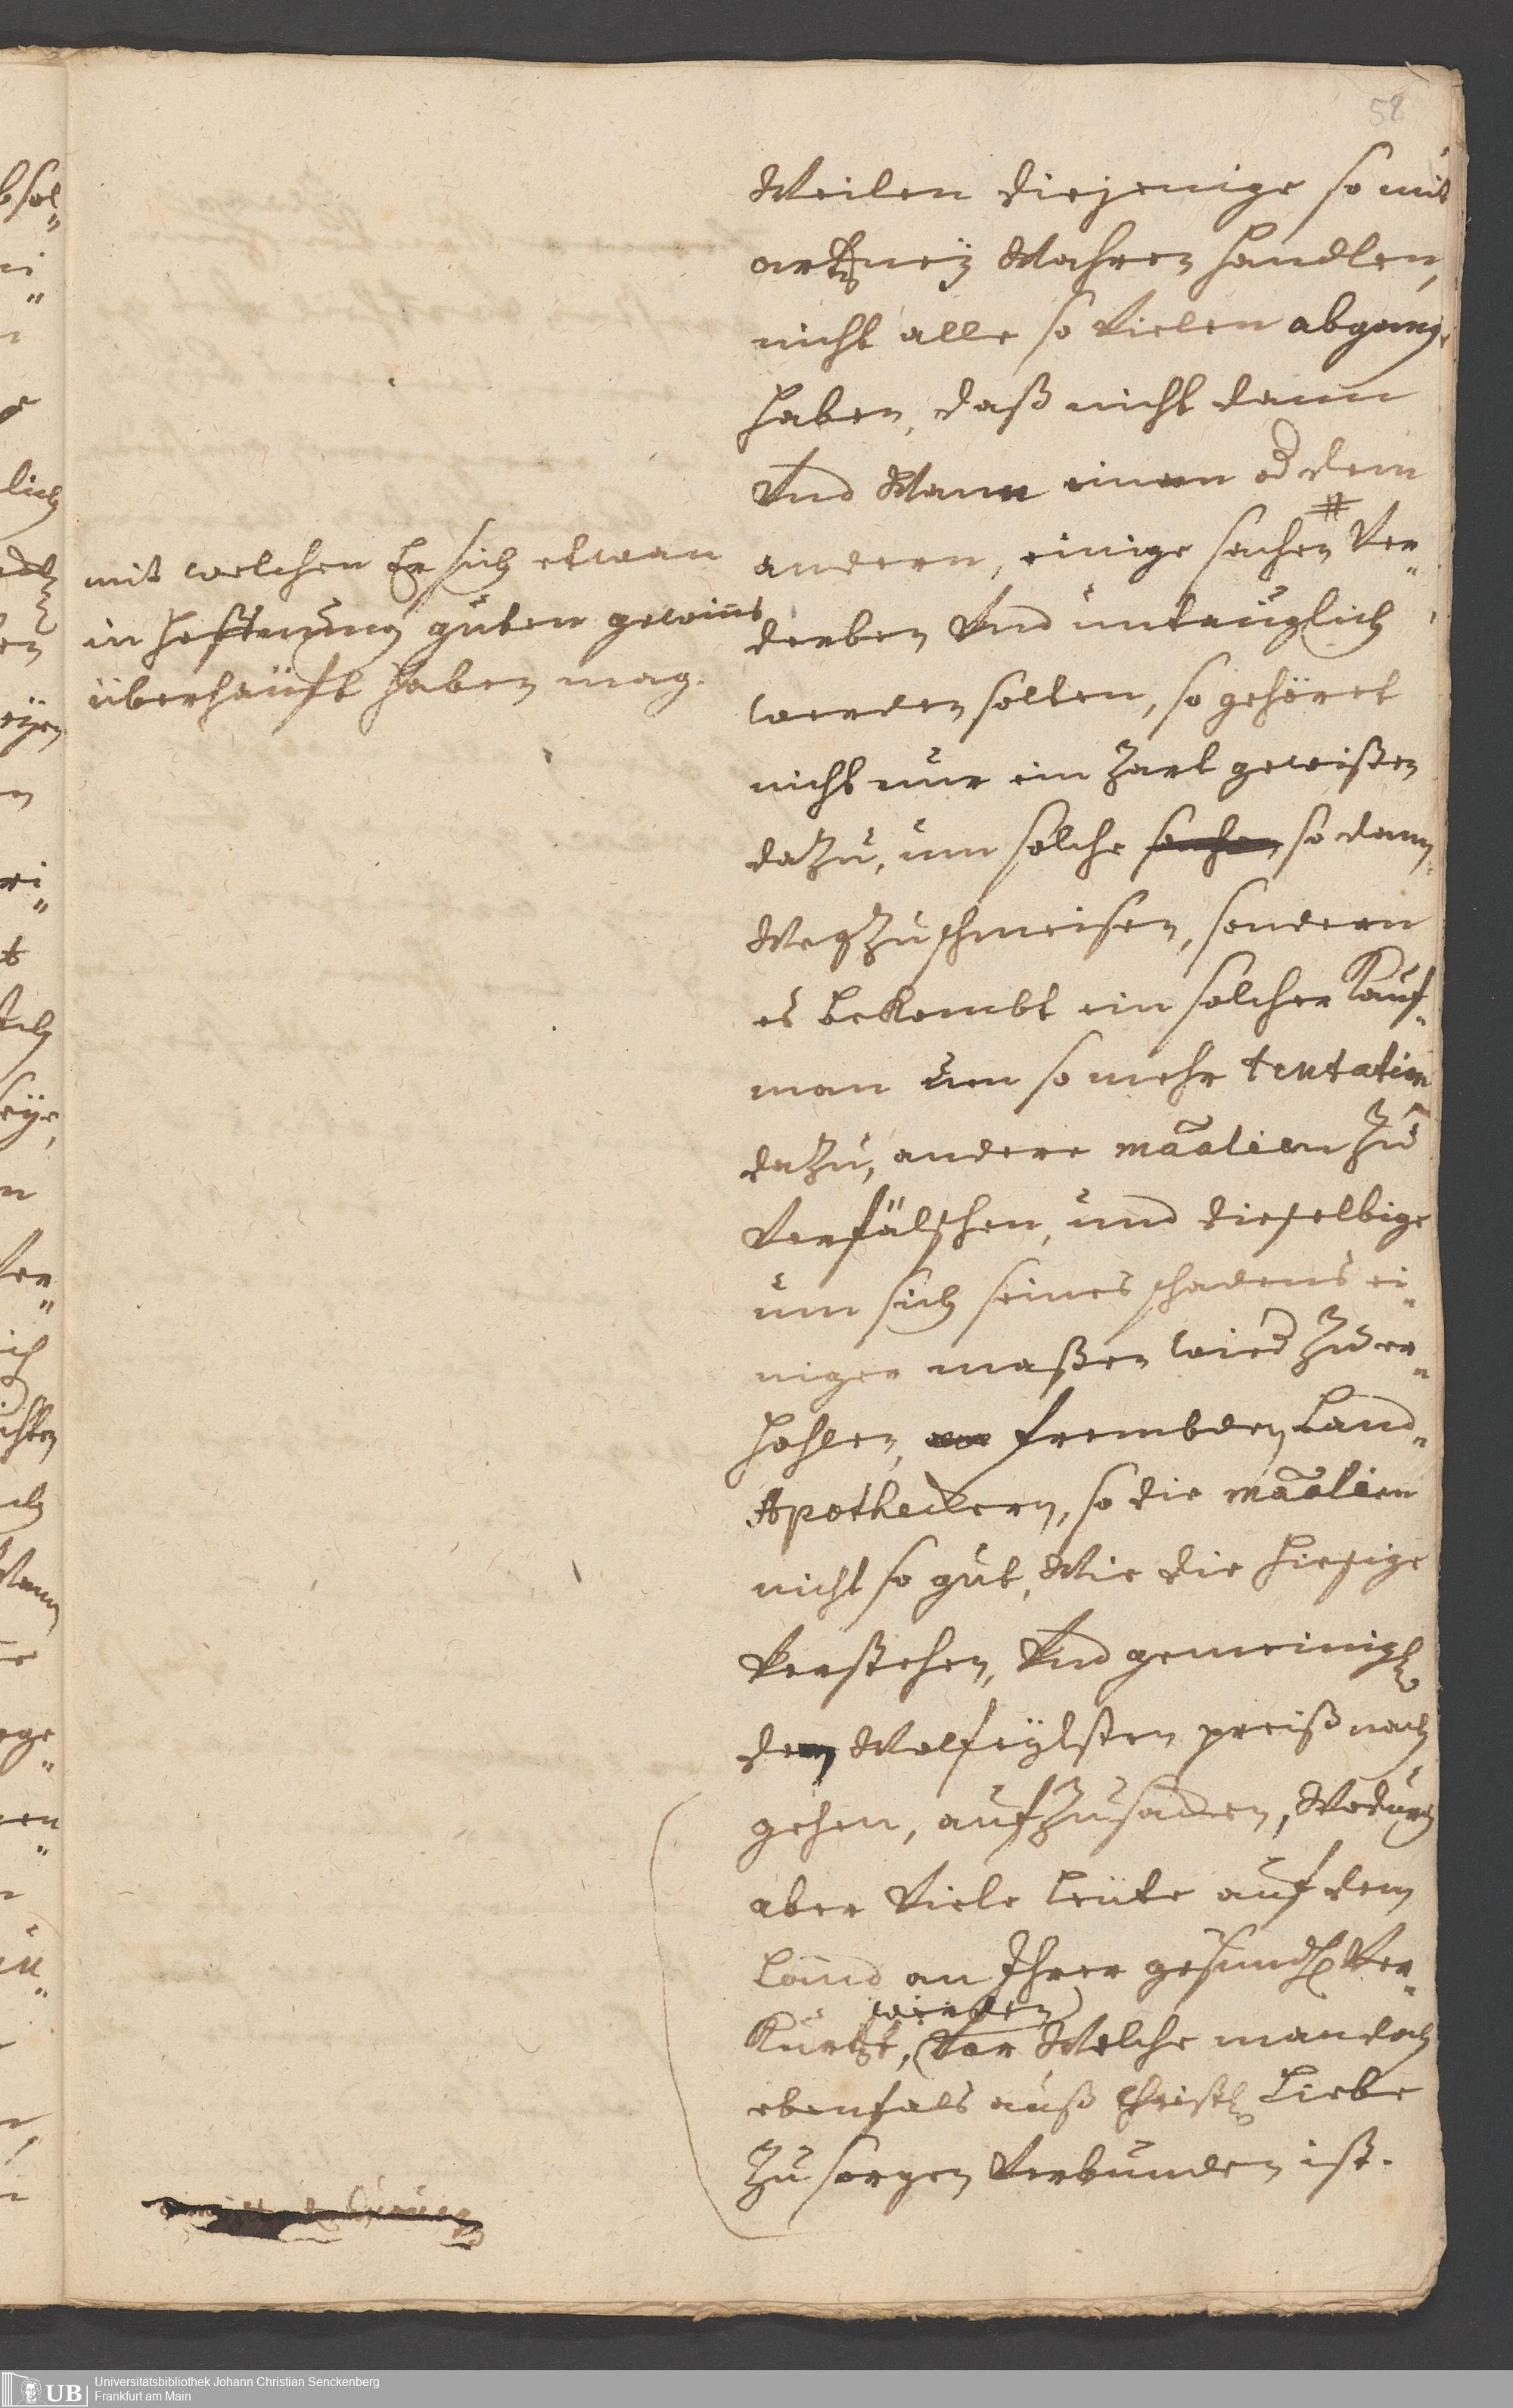 58
Weilen diejenige so mit
artzneÿ Wahren handlen,
nicht alle so Vielen abgang
haben, daß nicht dann
Und Wann einem od dem
andern, einige sachen # Ver„
derben Und untauglich
werden solten, so gehöret
nicht nur ein Zart gewißen
dazu, um solche sachen so dann
Wegzuschmeisen, sondern
es bekombt ein solcher Kauf„
man um so mehr tentation
dazu, andere maãlien zu
Verfälschen, und dieselbige
um sich seines schadens ei„
niger maßen wied zu er„
hohlen, frembden Land„
Apotheckern, so die maãlien
nicht so gut, Wie die hiesige
Verstehen, Und gemeinigl
dem Wolfeÿlsten preiß nach
gehen, aufzusacken, Wodurch
aber Viele leüte auf dem
Land an Ihrer gesundh Ver„
werden
Kürtzt, Vor Welche man doch
ebenfals auß Christl Liebe
zu sorgen Verbunden ist.
mit welchen Er sich etwan
in Hoffnung guten gewinns
überhäuft haben mag.
UB
Universitätsbibliothek Johann Christian Senckenberg
Frankfurt am Main